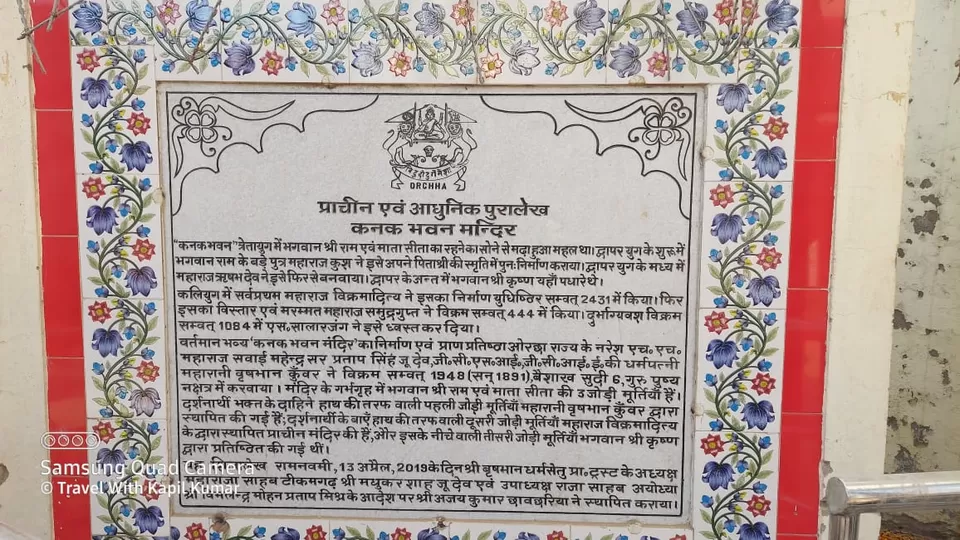 ORCHHA
प्राचीन एवं आधुनिक पुरालेख
कनक भवन मन्दिर
"कनक भवन" त्रेतायुग में भगवान श्री राम एवं माता सीता का रहने का सोने से मढ़ा हुआ महल था। द्वापर युग के शुरू में
भगवान राम के बड़े पुत्र महाराज कुश ने इसे अपने पिताश्री की स्मृति में पुनः निर्माण कराया। द्वापर युग के मध्य में
महाराज ऋषभ देव ने इसे फिर से बनवाया। द्वापर के अन्त में भगवान श्री कृष्ण यहाँ पधारे थे।
कलियुग में सर्वप्रथम महाराज विक्रमादित्य ने इसका निर्माण युधिष्ठिर सम्वत् 2431 में किया। फिर
इसका विस्तार एवं मरम्मत महाराज समुद्रगुप्त ने विक्रम सम्वत् 444 में किया। दुर्भाग्यवश विक्रम
सम्वत् 1084 में एस. सालारजंग ने इसे ध्वस्त कर दिया।
वर्तमान भव्य 'कनक भवन मंदिर' का निर्माण एवं प्राण प्रतिष्ठा ओरछा राज्य के नरेश एच. एच.
महाराज सवाई महेन्द्र सर प्रताप सिंह जू देव, जी. सी. एस. आई., जी. सी. आई. ई. की धर्मपत्नी
महारानी वृषभान कुँवर ने विक्रम सम्वत् 1948 (सन् 1891), बैशाख सुदी 6, गुरु पुष्य
नक्षत्र में करवाया। मंदिर के गर्भगृह में भगवान श्री राम एवं माता सीता की 3 जोड़ी मूर्तियाँ हैं।
दर्शनार्थी भक्त के दाहिने हाथ की तरफ वाली पहली जोड़ी मूर्तियाँ महारानी वृषभान कुँवर द्वारा
स्थापित की गई हैं; दर्शनार्थी के बाएँ हाथ की तरफ वाली दूसरी जोड़ी मूर्तियाँ महाराज विक्रमादित्य
के द्वारा स्थापित प्राचीन मंदिर की हैं, और इसके नीचे वाली तीसरी जोड़ी मूर्तियाँ भगवान श्री कृष्ण
द्वारा प्रतिष्ठित की गई थीं।
रामनवमी, 13 अप्रैल, 2019 के दिन श्री वृषभान धर्मसेतु प्रा० ट्रस्ट के अध्यक्ष
साहब टीकमगढ़ श्री मधुकर शाह जू देव एवं उपाध्यक्ष राजा साहब अयोध्या
मोहन प्रताप मिश्र के आदेश पर श्री अजय कुमार छावछरिया ने स्थापित कराया।
Samsung Quad Camera
© Travel With Kapil Kumar